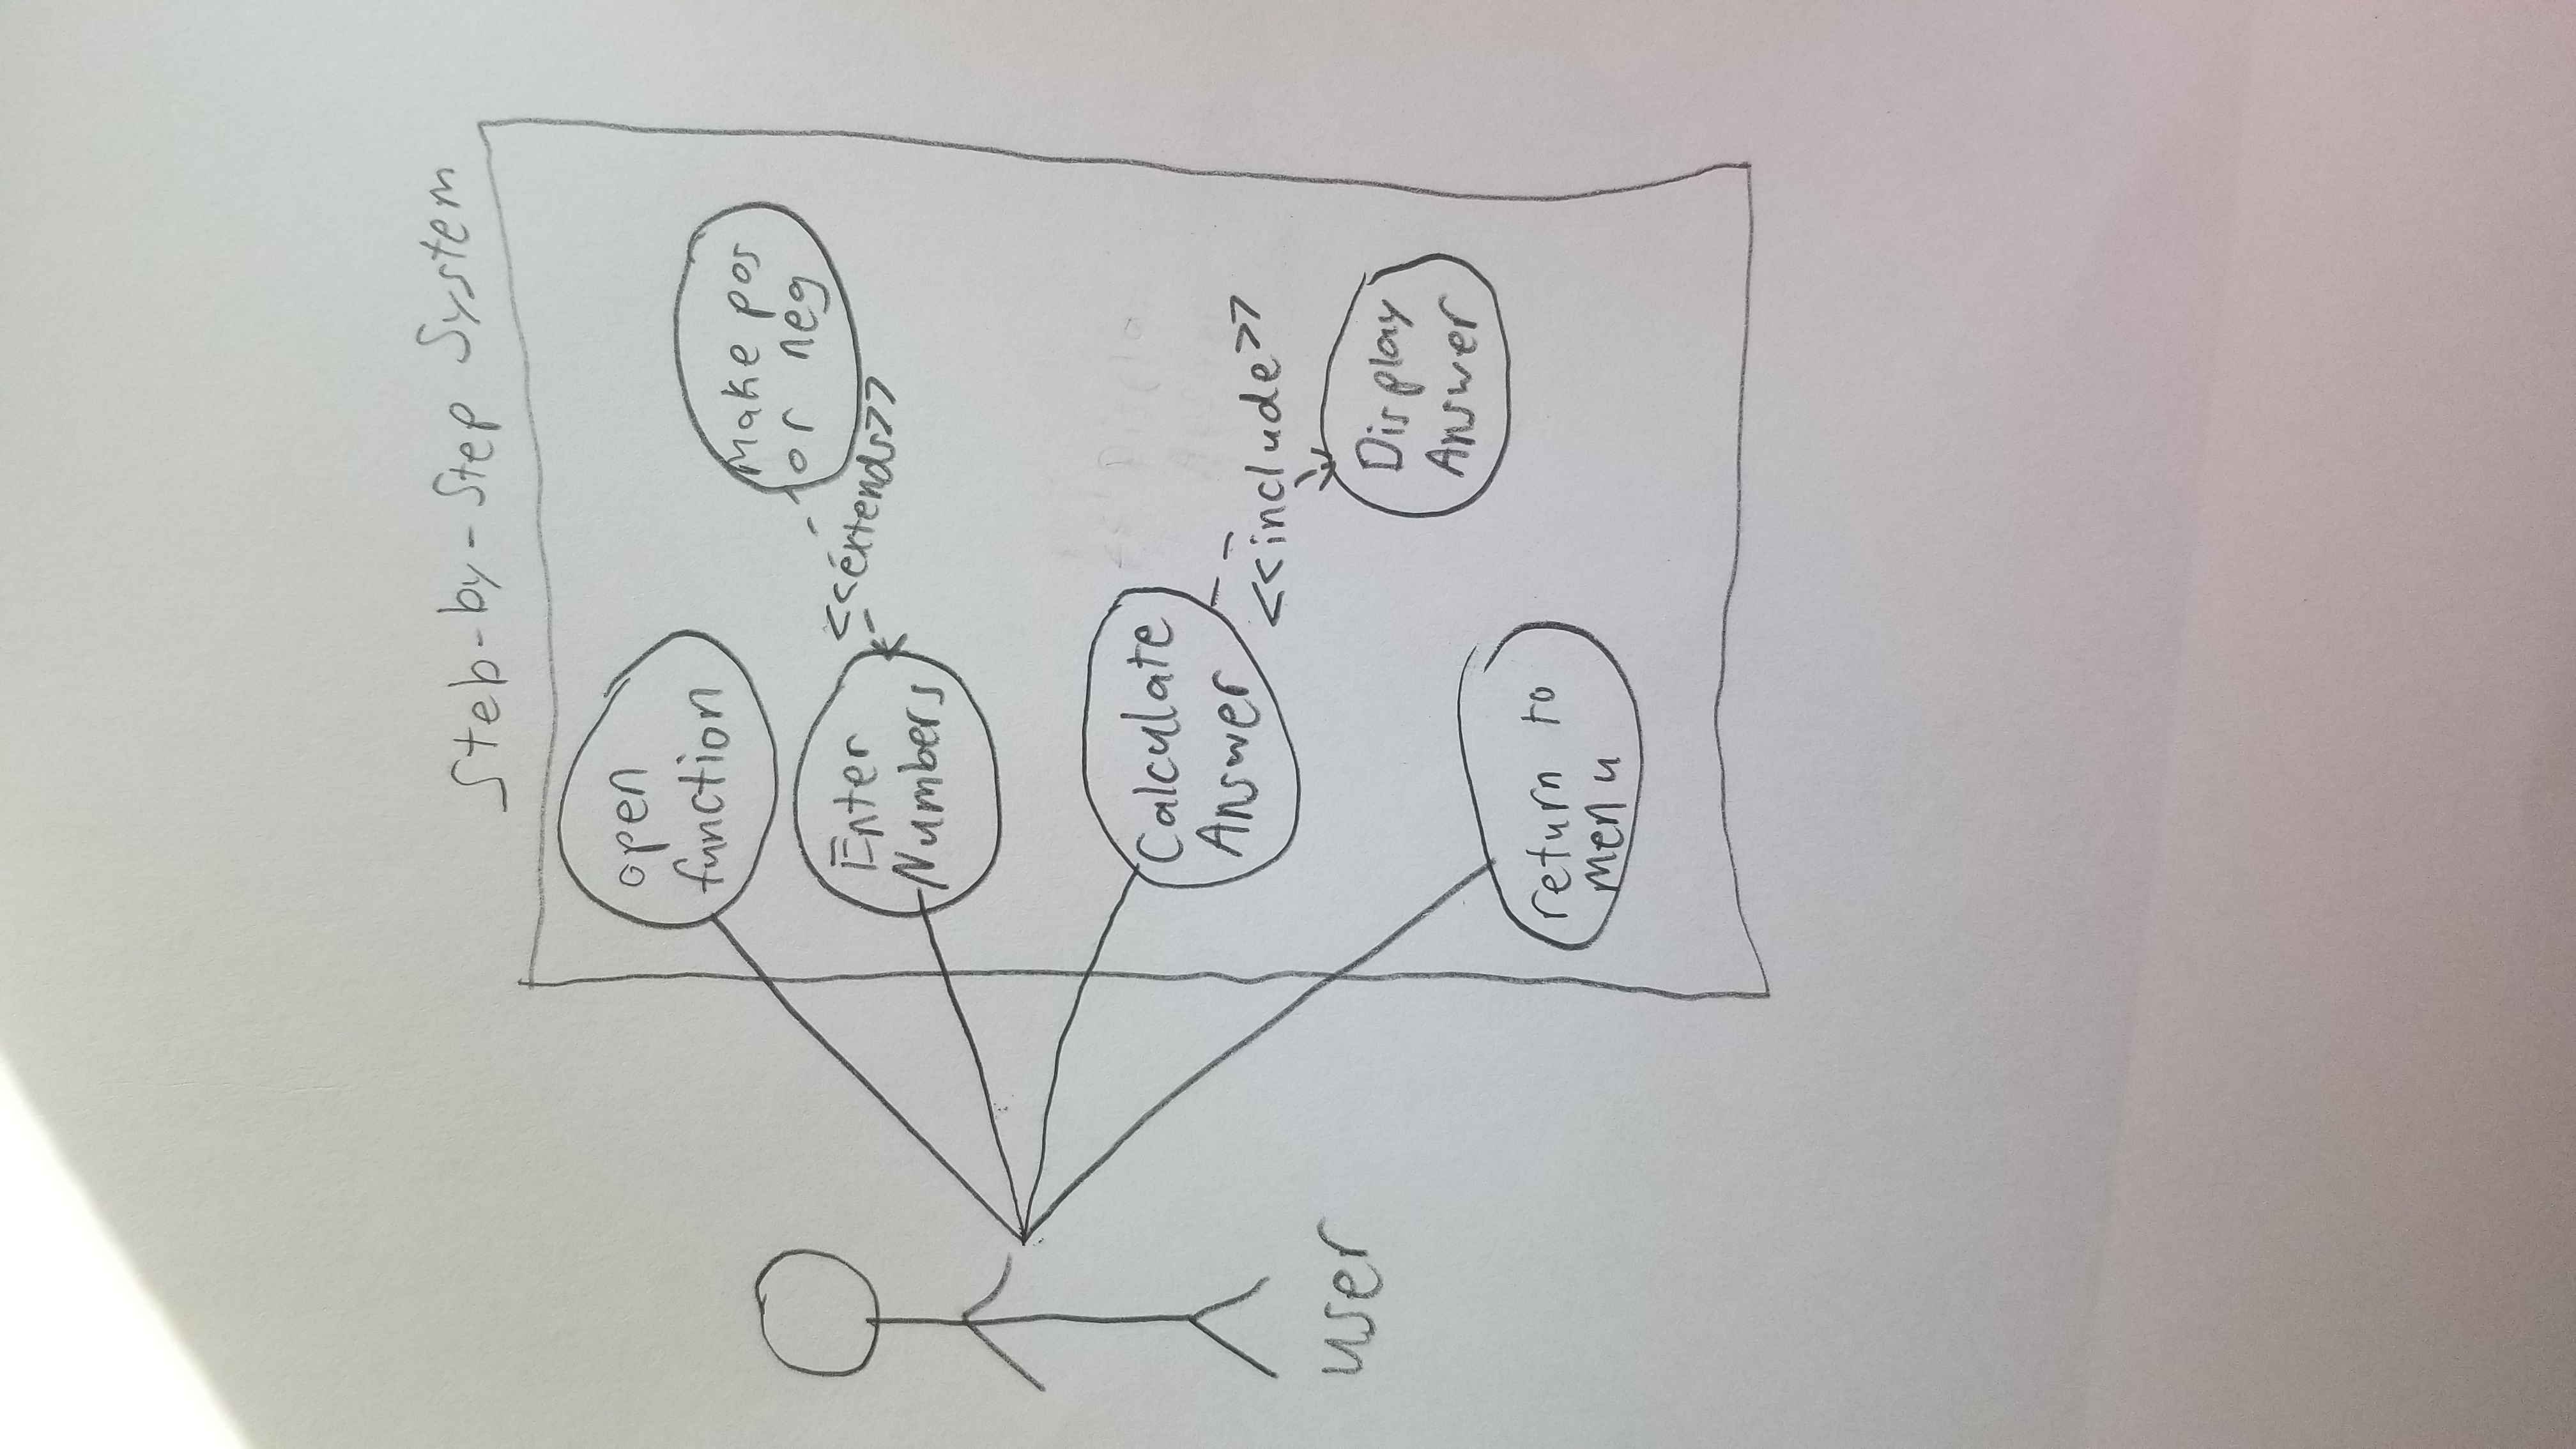 Steb-by-Step System
open
function
Make pos
or neg
<<extends>>
Enter
Numbers
Calculate
Answer
<<include>>
Display
Answer
return to
menu
user